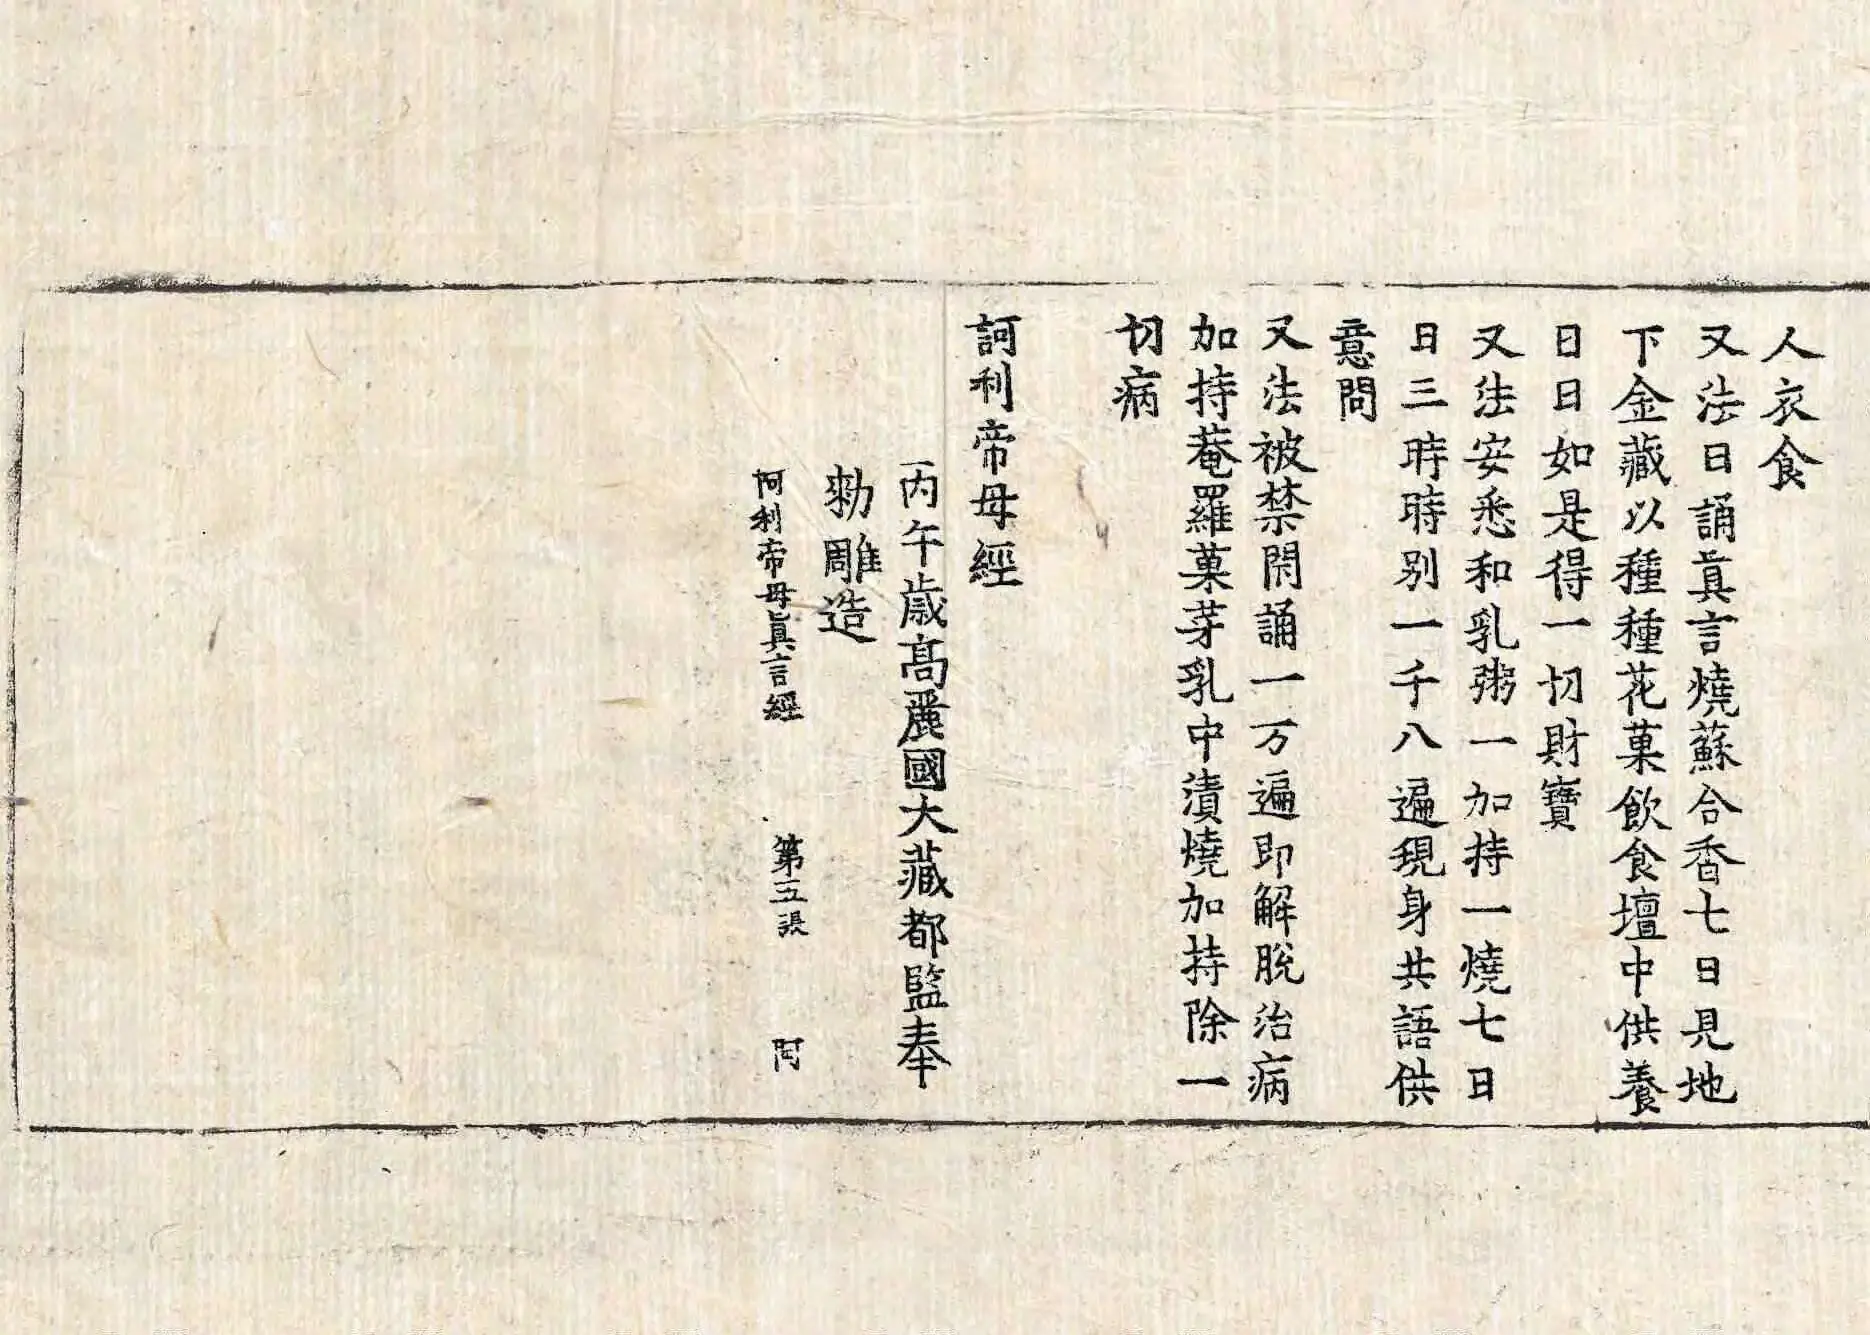 人衣食
又法日誦眞言燒蘇合香七日見地
下金藏以種種花菓飲食壇中供養
日日如是得一切財寶
又法安悉和乳粥一加持一燒七日
日三時時别一千八遍現身共語供
意問
又法被禁閇誦一万遍即解脫治病
加持菴羅菓芽乳中漬燒加持除一
切病
訶利帝母經
丙午歲高麗國大藏都監奉
勑雕造
阿利帝母眞言經 第五張 阿